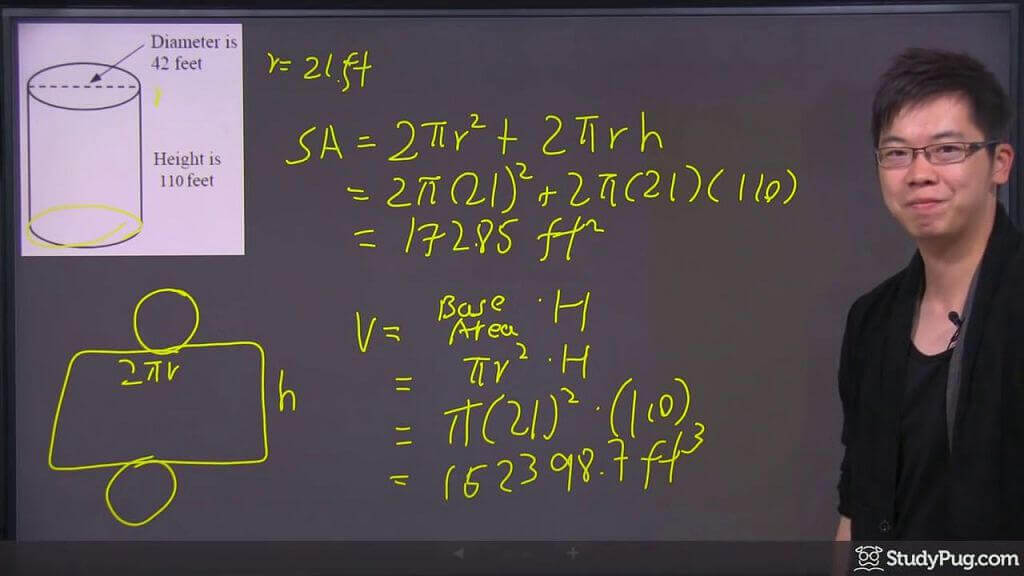 Diameter is
42 feet
r
Height is
110 feet
r = 21 ft
SA = 2πr² + 2πrh
= 2π(21)² + 2π(21)(110)
= 17285 ft²
V = Base Area · H
= πr² · H
= π(21)² · (110)
= 152398.7 ft³
2πr
h
StudyPug.com